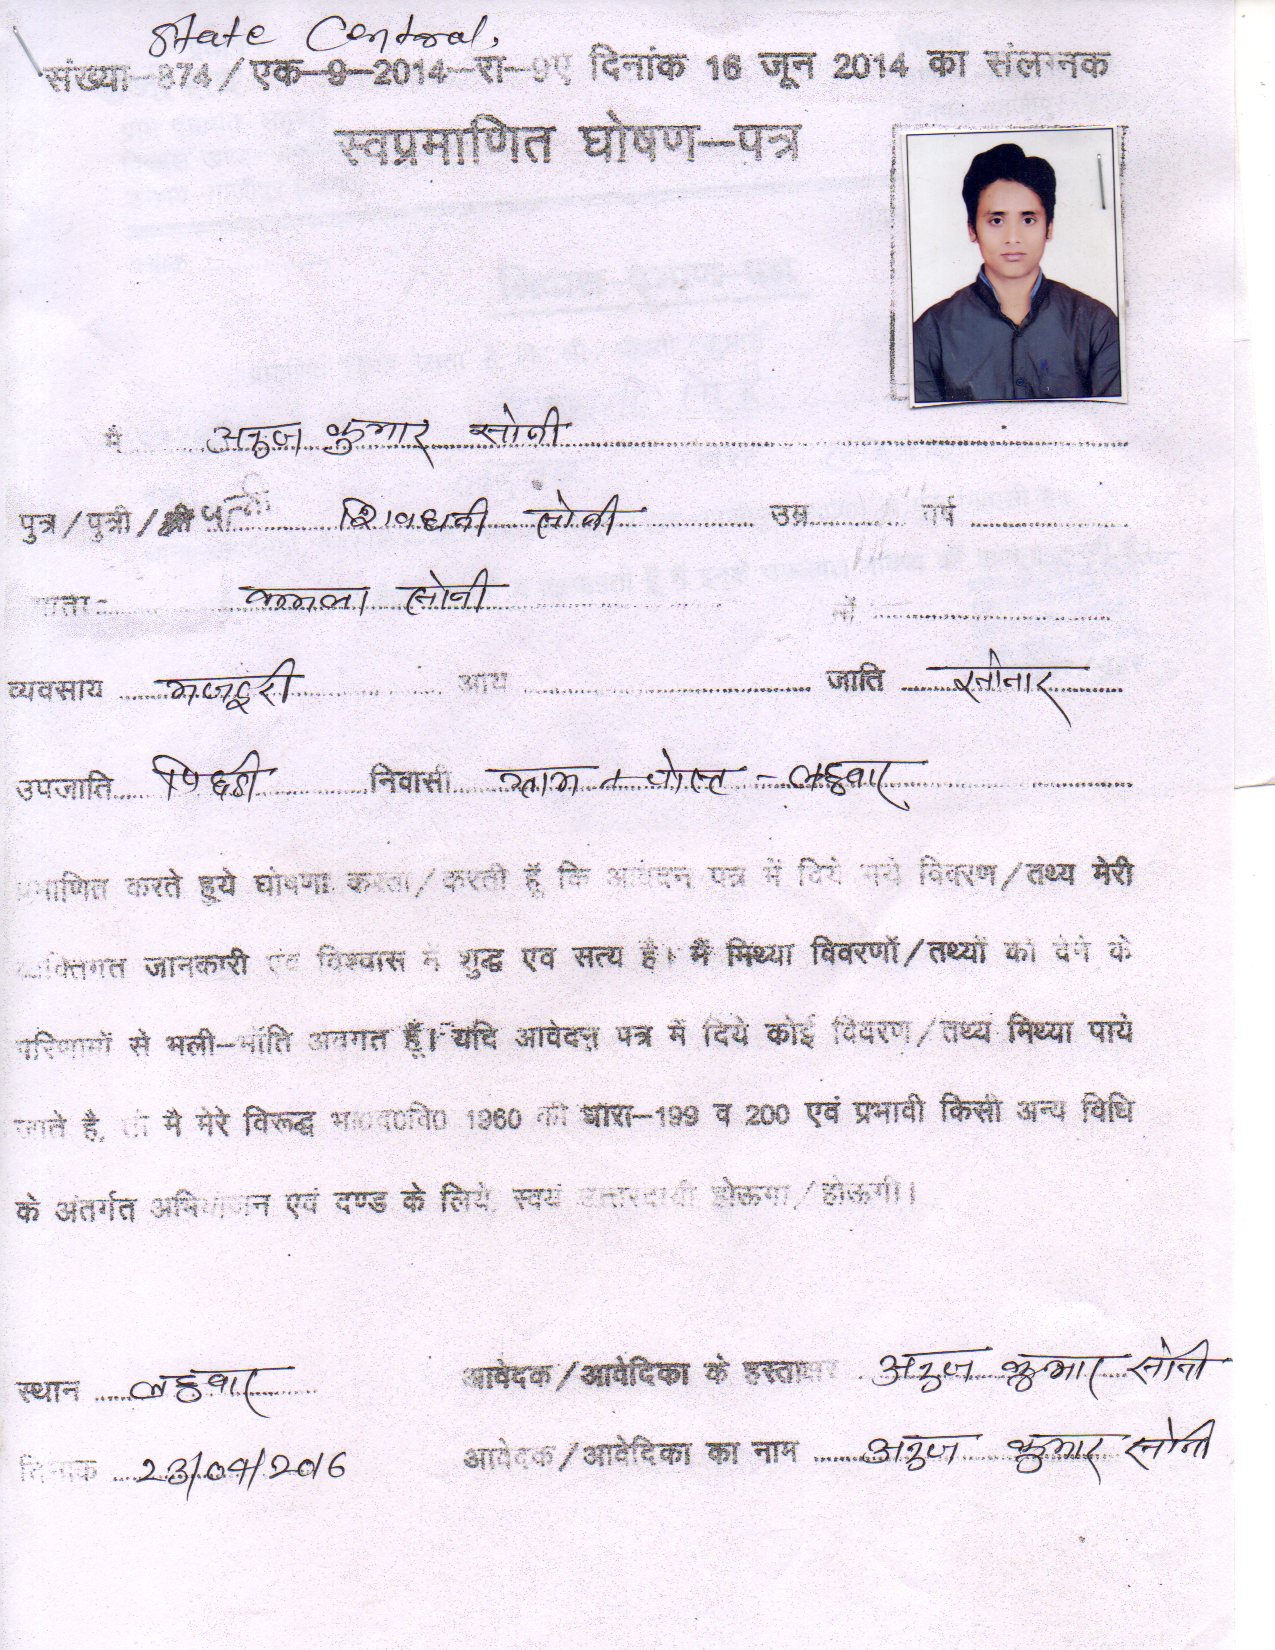 State Central,
संख्या-874/एक-9-2014-रा-9ए दिनांक 16 जून 2014 का संलग्नक
स्वप्रमाणित घोषण-पत्र
मै अनुज कुमार सोनी
पुत्र/पुत्री/श्री पत्नी शिवधनी सोनी उम्र वर्ष
माता- कमला सोनी
व्यवसाय मजदूरी आय जाति सोनार
उपजाति निवासी ग्राम व पोस्ट - लहुवार
प्रमाणित करते हुये घोषणा करता/करती हूँ कि आवेदन पत्र में दिये गये विवरण/तथ्य मेरी
व्यक्तिगत जानकारी एवं विश्वास में शुद्ध एव सत्य है। मैं मिथ्या विवरणों/तथ्यों को देने के
परिणामों से भली-भाँति अवगत हूँ। यदि आवेदन पत्र में दिये कोई विवरण/तथ्य मिथ्या पाये
जाते है, तो मै मेरे विरूद्ध भा0द0वि0 1960 की धारा-199 व 200 एवं प्रभावी किसी अन्य विधि
के अंतर्गत अभियोजन एवं दण्ड के लिये, स्वयं उत्तरदायी होऊगा/होऊगी।
स्थान लहुवार आवेदक/आवेदिका के हस्ताक्षर अनुज कुमार सोनी
दिनांक 23/04/2016 आवेदक/आवेदिका का नाम अनुज कुमार सोनी